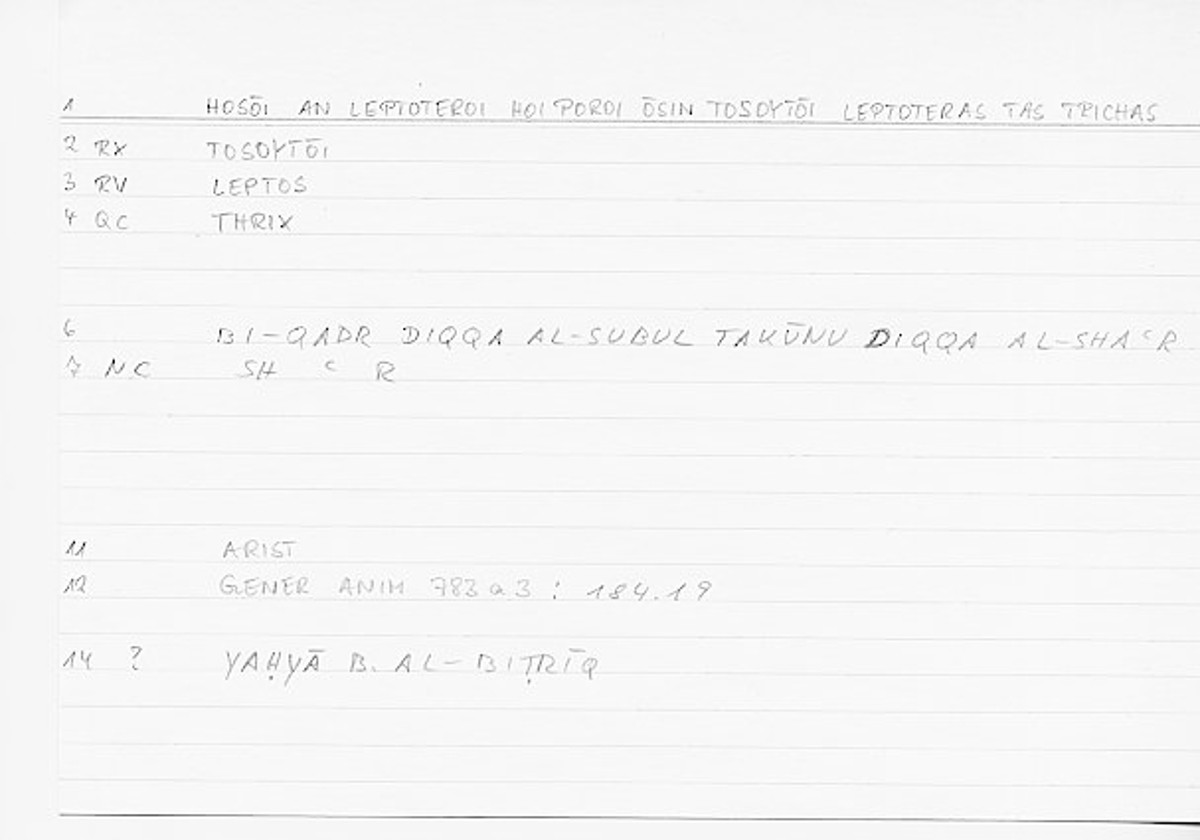 1 HOSŌI AN LEPTOTEROI HOI POROI ŌSIN TOSOYTŌI LEPTOTERAS TAS TRICHAS
2 RX TOSOYTŌI
3 RV LEPTOS
4 QC THRIX
6 BI-QADR DIQQA AL-SUBUL TAKŪNU DIQQA AL-SHAᶜR
7 NC SH ᶜ R
11 ARIST
12 GENER ANIM 783a3 : 184.19
14 ? YAḤYĀ B. AL-BIṬRĪQ